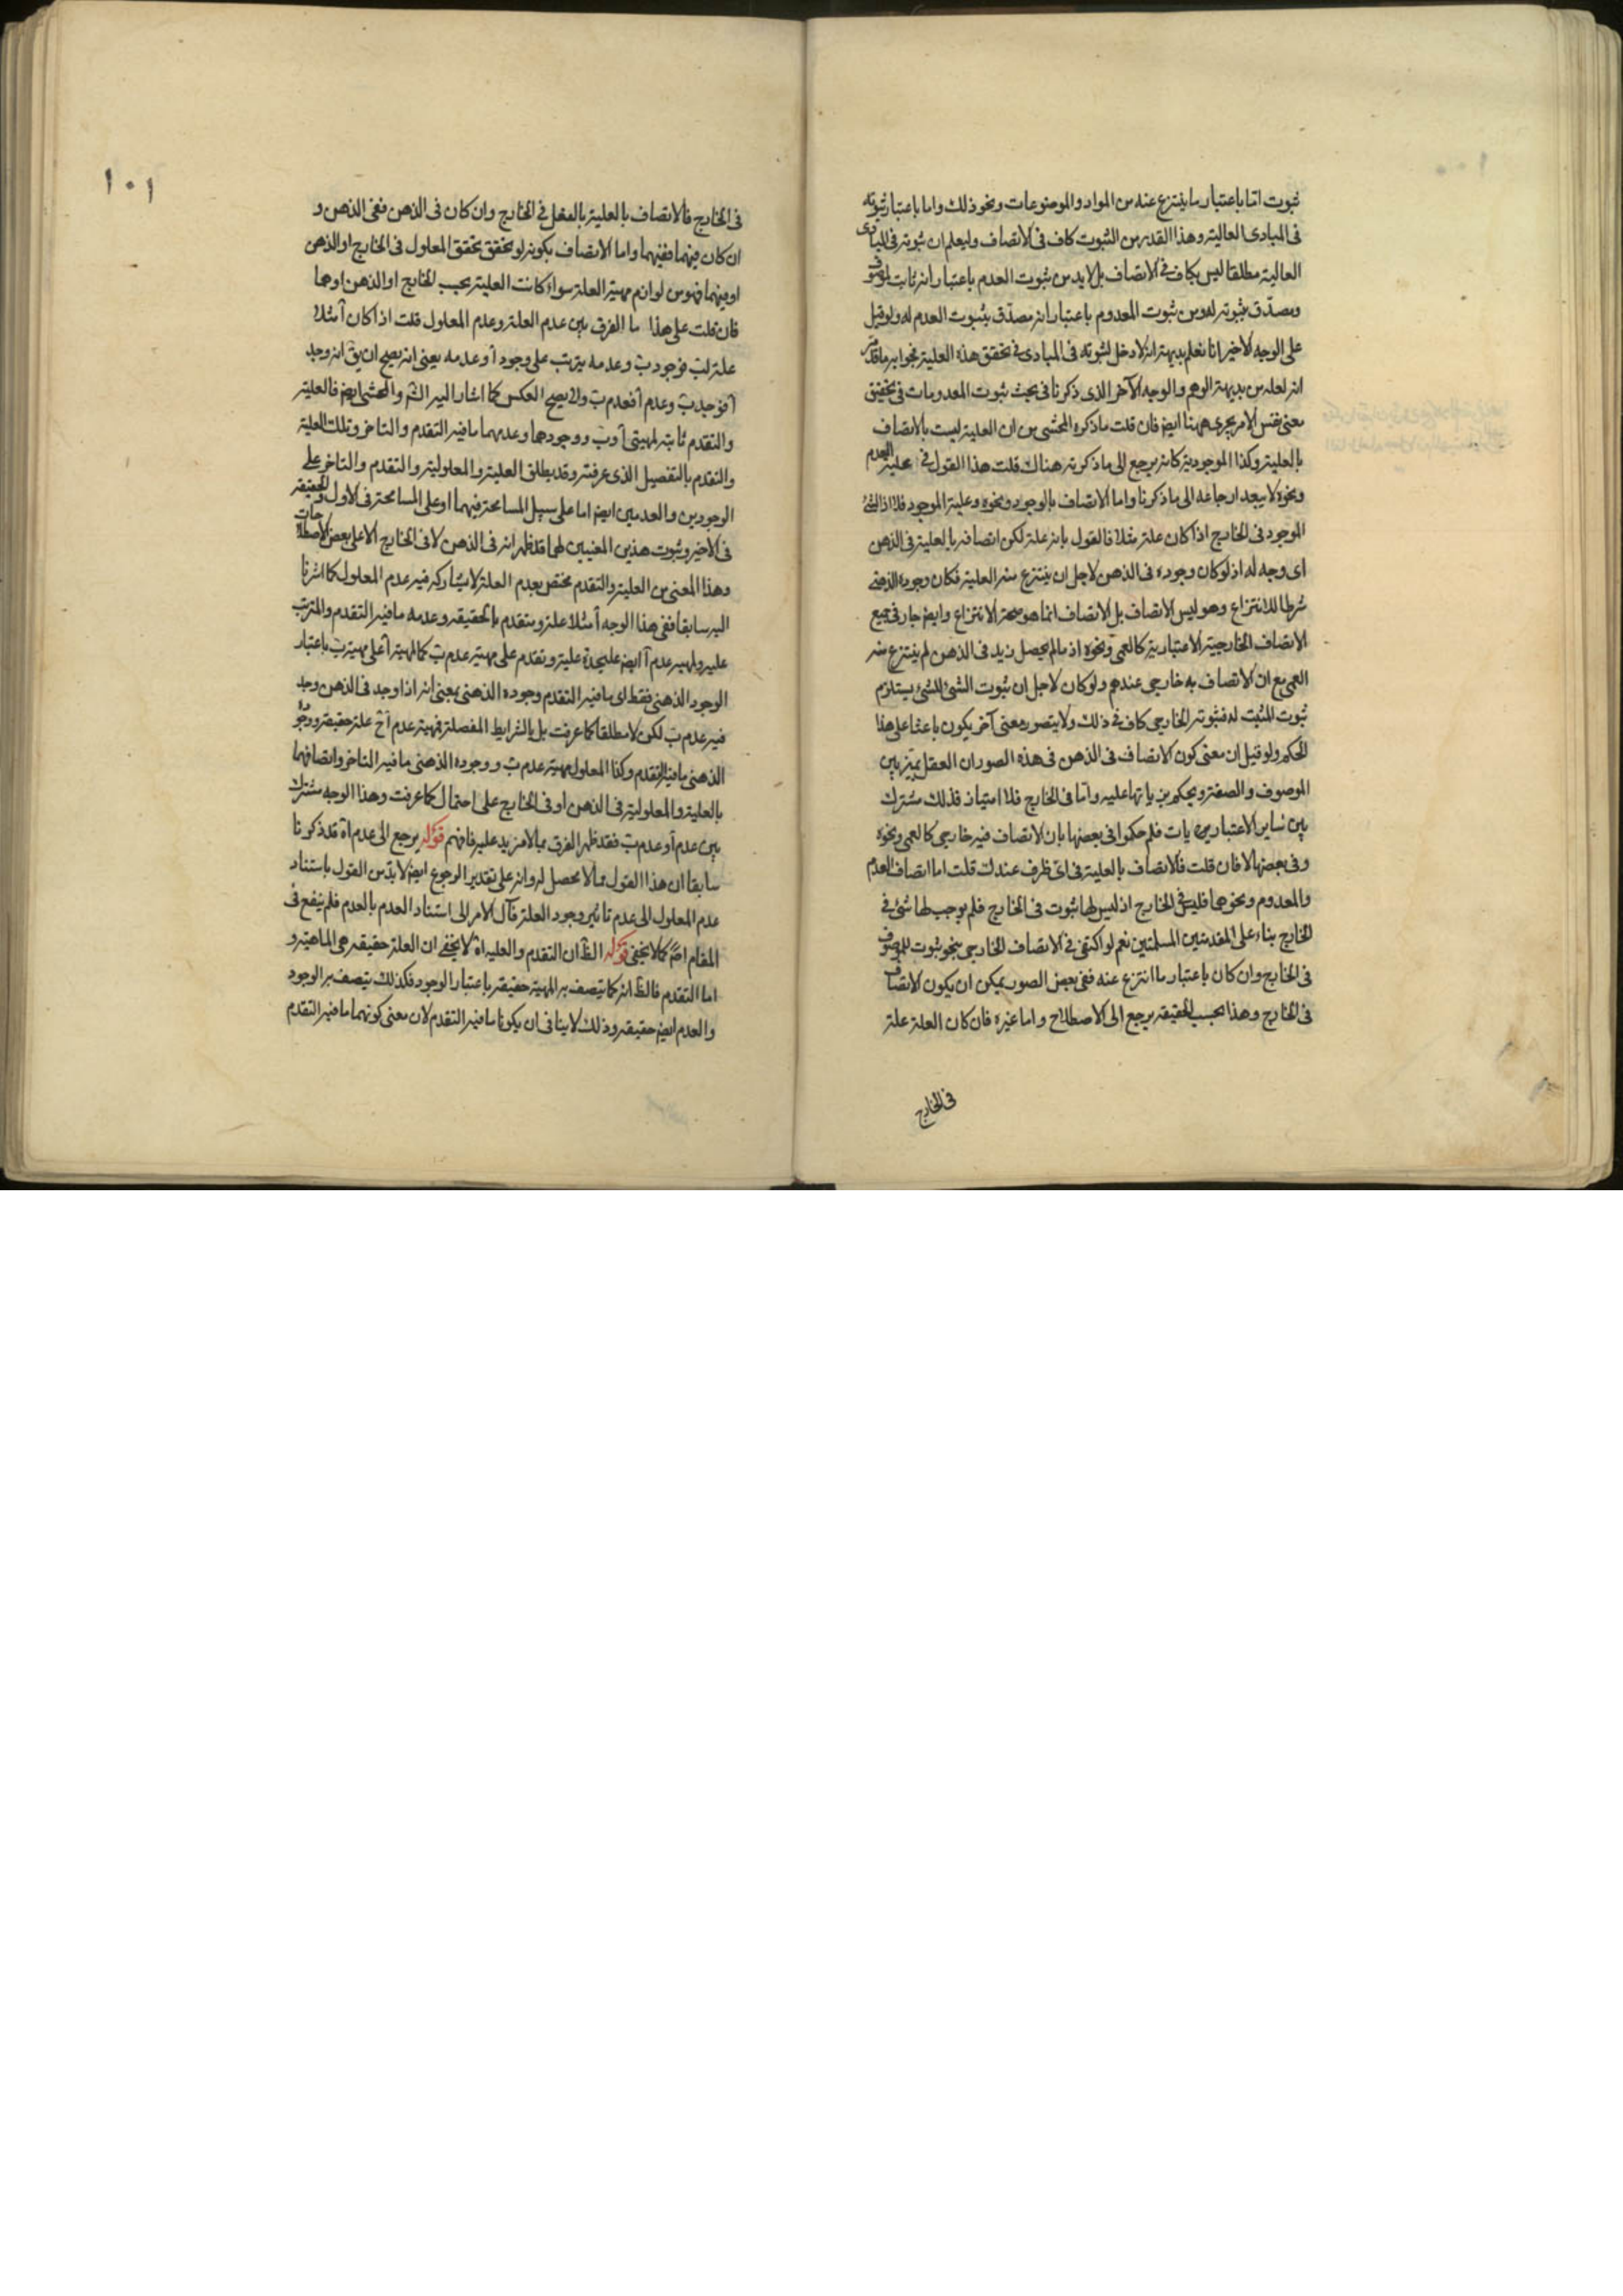 ثبوت اما باعتبار ما ينتزع عنه من المواد والموضوعات ونحو ذلك واما باعتبار ثبوته
فى المبادى العالية وهذا القدر من الثبوت كاف فى الاتصاف وليعلم ان ثبوته فى المبادى
العالية مطلقا ليس بكاف فى الاتصاف بل لابد من ثبوت العدم باعتبار انه ثابت لموصوف
ومصدّق بثبوته له ومن ثبوت المعدوم باعتبار انه مصدّق بثبوت العدم له ولو قيل
على الوجه الاخير انا نعلم بديهة انه لا دخل لثبوته فى المبادى فى تحقق هذه العلية فجوابه ما قد مر
انه لعله من بديهة الوهم والوجه الآخر الذى ذكرنا فى بحث ثبوت المعدومات فى تحقيق
معنى نفس الامر يجرى ههنا ايض فان قلت ما ذكره المحشى من ان العلية ليست بالاتصاف
بالعلية وكذا الموجودية كانه يرجع الى ما ذكرته هناك قلت هذا القول فى علية العدم
ونحوه لا يبعد ارجاعه الى ما ذكرنا واما الاتصاف بالوجود ونحوه وعلية الموجود فلا اذ الشئ
الموجود فى الخارج اذا كان علة مثلا فالقول بانه علة لكن اتصافه بالعلية فى الذهن
اى وجه له اذ لو كان وجوده فى الذهن لاجل ان ينتزع منه العلية فكان وجوده الذهنى
شرطا للانتزاع وهو ليس الاتصاف بل الاتصاف انما هو صحة الانتزاع وايض جار فى جميع
الاتصاف الخارجية الاعتبارية كالعمى ونحوه اذ ما لم يحصل زيد فى الذهن لم ينتزع منه
العمى مع ان الاتصاف به خارجى عندهم ولو كان لاجل ان ثبوت الشئ للشئ يستلزم
ثبوت المثبت له فثبوته الخارجى كاف فى ذلك ولا يتصور معنى آخر يكون باعثا على هذا
الحكم ولو قيل ان معنى كون الاتصاف فى الذهن فى هذه الصور ان العقل يميّز بين
الموصوف والصفة ويحكم بزياتها عليه واما فى الخارج فلا امتياز فذلك مشترك
بين ساير الاعتباريات فلم حكموا فى بعضها بان الاتصاف فيه خارجى كالعمى ونحوه
وفى بعضها لا فان قلت فالاتصاف بالعلية فى اى ظرف عندك قلت اما اتصاف العدم
والمعدوم ونحوهما فليس فى الخارج اذ ليس لها ثبوت فى الخارج فلم يوجب لها شئ فى
الخارج بناء على المقدمتين المسلمتين نعم لو اكتفى فى الاتصاف الخارجى بنحو ثبوت للموصوف
فى الخارج وان كان باعتبار ما انتزع عنه ففى بعض الصور يمكن ان يكون الاتصاف
فى الخارج وهذا بحسب الحقيقة يرجع الى الاصطلاح واما غيره فان كان العلة علة
فى الخارج
١٠١
فى الخارج فالاتصاف بالعلية بالفعل فى الخارج وان كان فى الذهن ففى الذهن و
ان كان فيهما ففيهما واما الاتصاف بكونه لو تحقق تحقق المعلول فى الخارج او الذهن
او فيهما فهو من لوازم مهية العلة سواء كانت العلية بحسب الخارج او الذهن او هما
فان قلت على هذا ما الفرق بين عدم العلة وعدم المعلول قلت اذا كان آ مثلا
علة لب فوجود ب وعدمه يترتب على وجود آ وعدمه يعنى انه يصح ان يق انه وجد
آ فوجد ب وعدم آ فعدم ب ولا يصح العكس كما اشار اليه الش والمحشى ايض فالعلية
والتقدم ثابتة لمهيتى آ وب ووجودهما وعدمهما ما فيه التقدم والتاخر وتلك العلية
والتقدم بالتفصيل الذى عرفته وقد يطلق العلية والمعلولية والتقدم والتاخر على
الوجودين والعدمين ايض اما على سبيل المسامحة فيهما او على المسامحة فى الاول والحقيقة
فى الاخير وثبوت هذين المعنيين لهما قد ظهر انه فى الذهن لا فى الخارج الا على بعض الاصطلاحات
وهذا المعنى من العلية والتقدم مختص بعدم العلة لا يشاركه فيه عدم المعلول كما اشرنا
اليه سابقا ففى هذا الوجه آ مثلا علة ومتقدم بالحقيقة وعدمه ما فيه التقدم والمترتب
عليه ولمهية عدم آ ايض عليحدة علية وتقدم على مهية عدم ب كما لمهية آ على مهية ب باعتبار
الوجود الذهنى فقط اى ما فيه التقدم وجوده الذهنى بمعنى انه اذا وجد فى الذهن وجد
فيه عدم ب لكن لا مطلقا كما عرفت بل بالشرايط المفصلة فمهية عدم آ ح علة حقيقة ووجوده
الذهنى ما فيه التقدم وكذا المعلول مهية عدم ب ووجوده الذهنى ما فيه التاخر واتصافهما
بالعلية والمعلولية فى الذهن او فى الخارج على احتمال كما عرفت وهذا الوجه مشترك
بين عدم آ وعدم ب فقد ظهر الفرق بما لا مزيد عليه فافهم قوله يرجع الى عدم اه قد ذكرنا
سابقا ان هذا القول مما لا محصل له وانه على تقدير الرجوع ايض لا بد من القول باستناد
عدم المعلول الى عدم تاثير وجود العلة فآل الامر الى استناد العدم بالعدم فلم ينفع فى
المقام اصلا كما لا يخفى قوله الظ ان التقدم والعلية اه لا يخفى ان العلة حقيقة هى الماهية و
اما التقدم فالظ انه كما يتصف به المهية حقيقة باعتبار الوجود فكذلك يتصف به الوجود
والعدم ايض حقيقة وذلك لا ينافى ان يكونا ما فيه التقدم لان معنى كونهما ما فيه التقدم